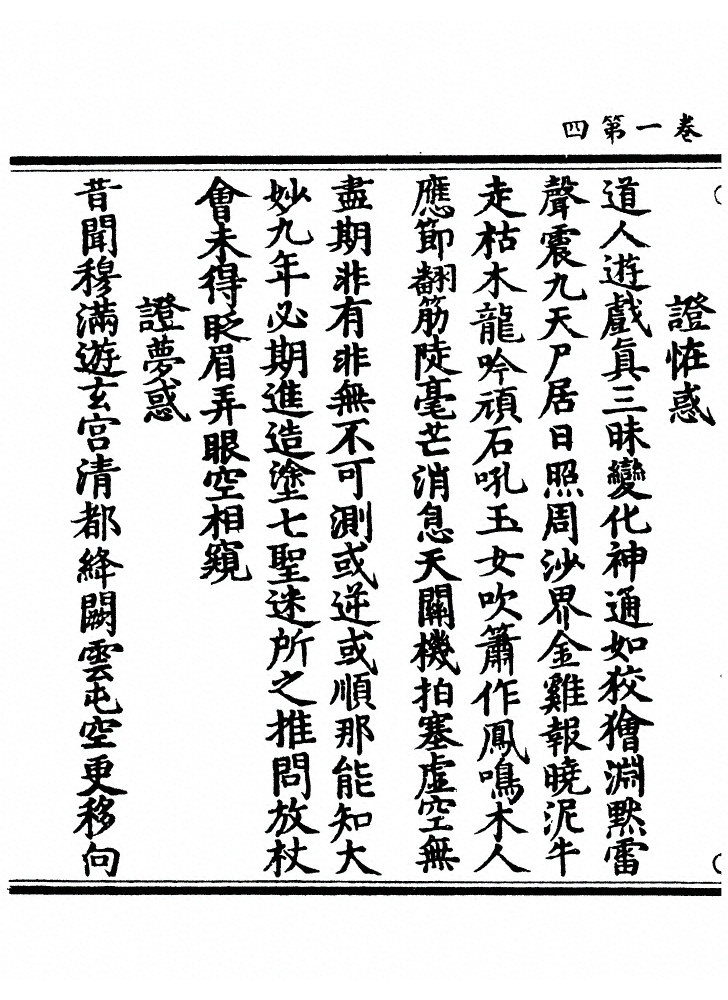 卷一第四
證怪惑
道人遊戲眞三昧變化神通如狡獪淵默雷
聲震九天尸居日照周沙界金雞報曉泥牛
走枯木龍吟頑石吼玉女吹簫作鳳鳴木人
應節翻筋陡毫芒消息天關機拍塞虛空無
盡期非有非無不可測或逆或順那能知大
妙九年必期進造塗七聖迷所之推問放杖
會未得眨眉弄眼空相窺
證夢惑
昔聞穆滿遊玄宮清都絳闕雲屯空更移向